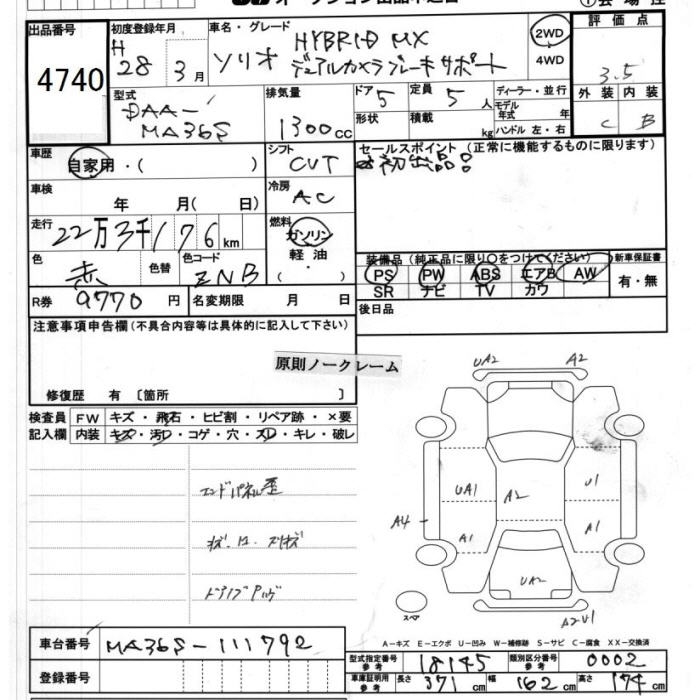 出品番号 初度登録年月 車名・グレード 評価点
4740 H 28 3月 ソリオ HYBRID MX 2WD 4WD 3.5
デュアルカメラブレーキサポート
型式 排気量 ドア 定員 ディーラー・並行 外装 内装
DAA-MA36S 1300cc 5 5人 モデル年式 年 C B
形状 積載 kg ハンドル 左・右
車歴 シフト セールスポイント(正常に機能するものに限ります)
自家用・( ) CVT 初出品
車検 冷房
年 月( 日) AC
走行 燃料
22万3千176km ガソリン 軽油 ・( )
色 色替 色コード 装備品(純正品に限り○をつけてください) 新車保証書
赤 ZNB PS PW ABS エアB AW 有・無
SR ナビ TV カワ
R券 9770円 名変期限 月 日 後日品
注意事項申告欄(不具合内容等は具体的に記入して下さい)
原則ノークレーム
修復歴 有 〔箇所 〕
検査員 FW キズ・飛石・ヒビ割・リペア跡・×要
記入欄 内装 キズ・汚レ・コゲ・穴・スレ・キレ・破レ
エンドパネル歪
ドアバイザ
UA2 A2
UA1 A2 U1
A4 A1 A1
UA2
スペア A2U1
A-キズ E-エクボ U-凹み W-補修跡 S-サビ C-腐食 XX-交換済
車台番号 MA36S-111792
型式指定番号 参考 18145 類別区分番号 参考 0002
登録番号 車庫証明用 参考 長さ 371cm 幅 162cm 高さ 174cm